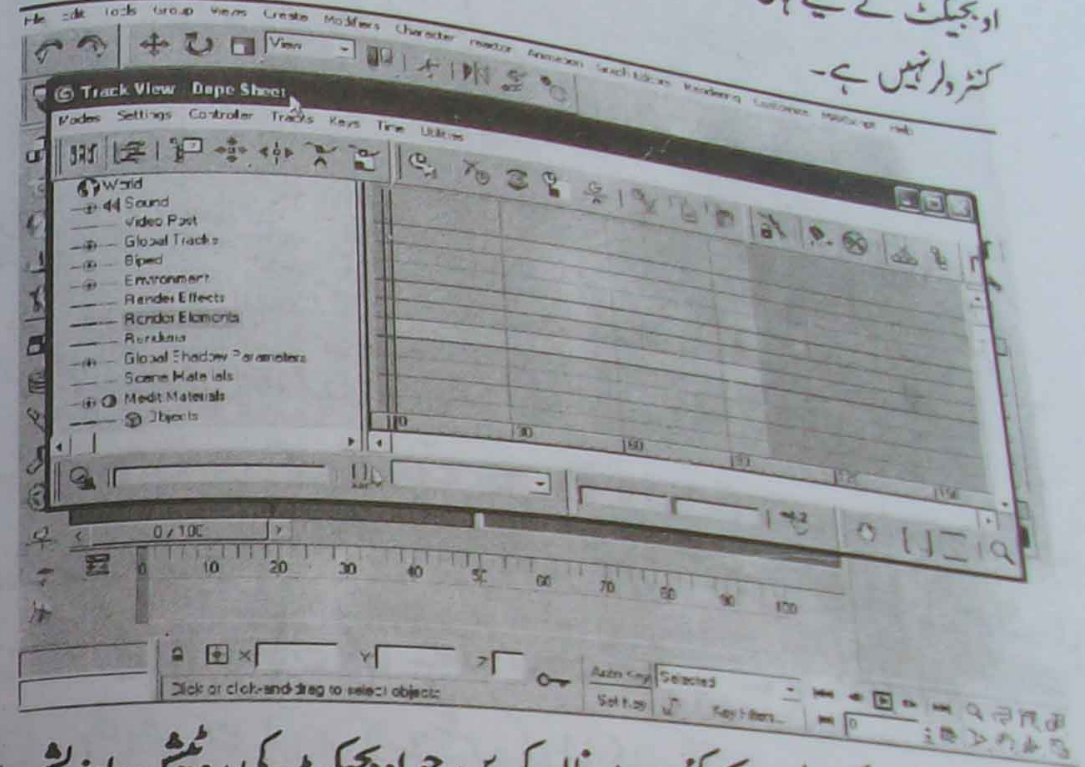 اوبجیکٹ کے لیے
کنٹرولر نہیں ہے۔
File Edit Tools Group Views Create Modifiers Character reactor Animation Graph Editors Rendering Customize MAXScript Help
View
Track View - Dope Sheet
Modes Settings Controller Tracks Keys Time Utilities
World
Sound
Video Post
Global Tracks
Biped
Environment
Render Effects
Render Elements
Renderer
Global Shadow Parameters
Scene Materials
Medit Materials
Objects
0 30 60 90 120 150
0 / 100
0 10 20 30 40 50 60 70 80 90 100
X Y Z
Auto Key Selected
Click or click-and-drag to select objects
Set Key Key Filters... 0